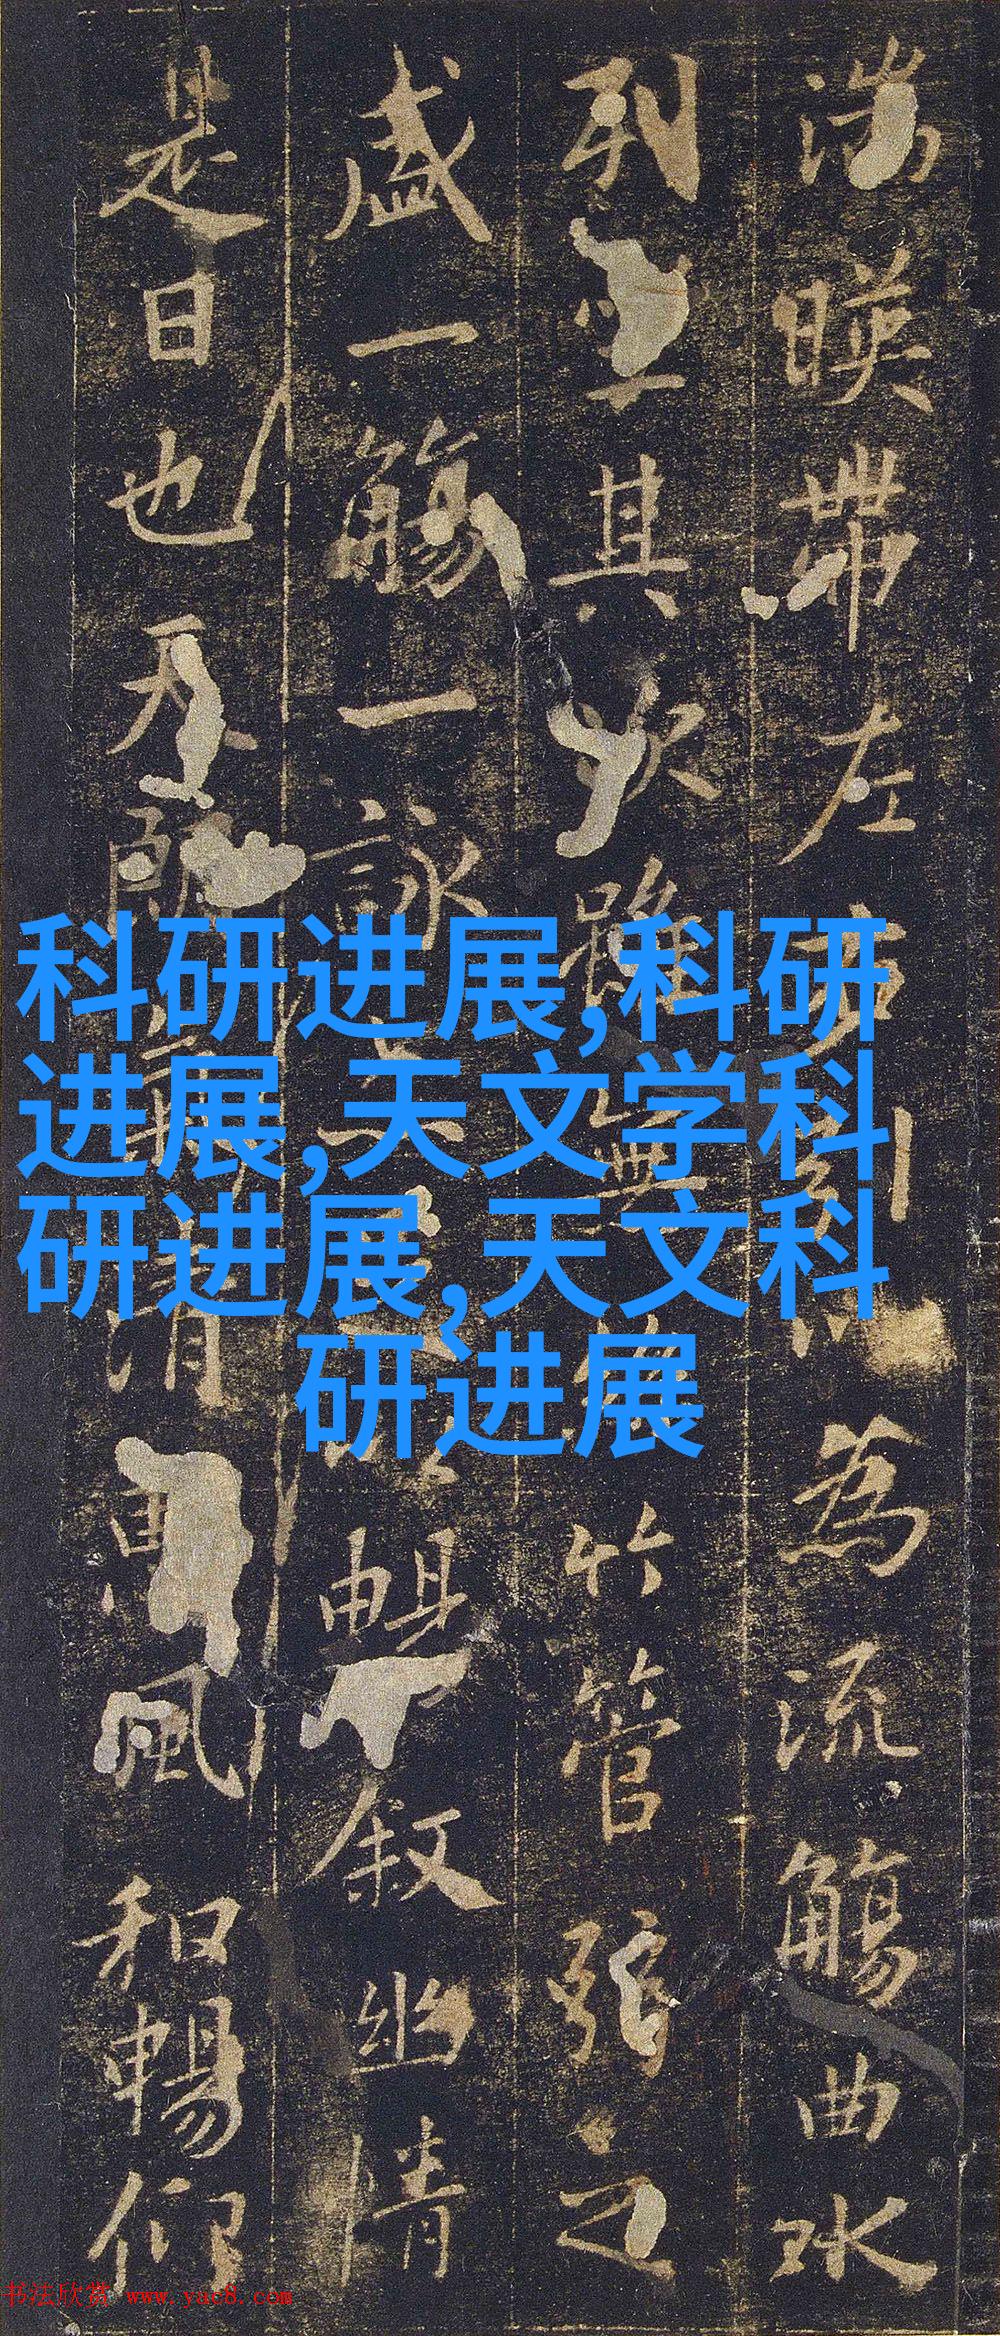 湍暎帶左右引以為流觴曲水
列坐其次雖無絲竹管弦之
盛一觴一詠亦足以暢敘幽情
是日也天朗氣清惠風和暢仰
科研进展,科研
进展,天文学科
研进展,天文科
研进展
书法欣赏 www.yac8.com